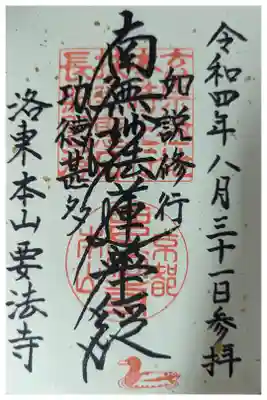 令和四年八月三十一日参拝
如説修行
南無妙法蓮華経
功徳甚多
洛東本山要法寺